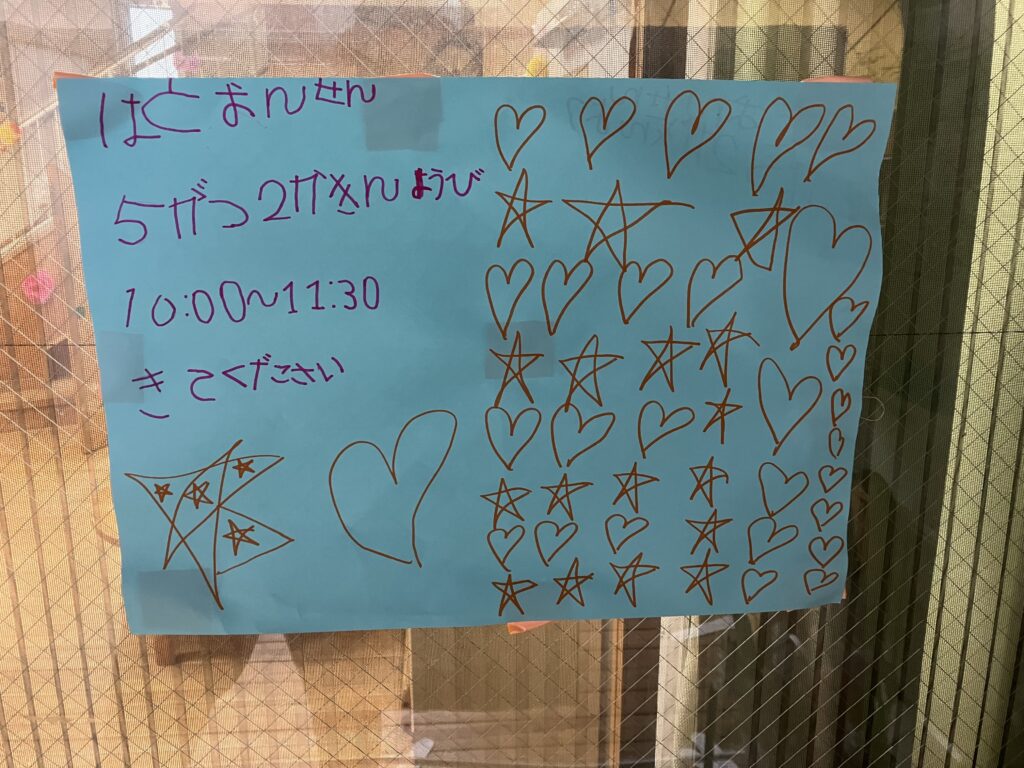 はと おんせん
5がつ2かきんようび
10:00〜11:30
きてください